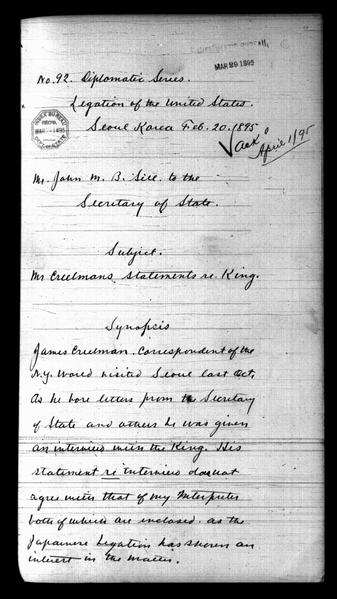 MAR 29 1895
No. 92. Diplomatic Series.
Legation of the United States.
Seoul Korea Feb. 20. 1895
INDEX BUREAU
MAR 1895
April 1/95
Mr. John M. B. Sill to the
Secretary of State.
Subject.
Mr Creelmans statements re. King.
Synopsis
James Creelman. Correspondent of the
N.Y. World visited Seoul last Oct,
As he bore letters from the Secretary
of State and others he was given
an interview with the King. His
statement re interview does not
agree with that of my Interpreter
both of which are inclosed. as the
Japanese Legation has shown an
interest in the matter.